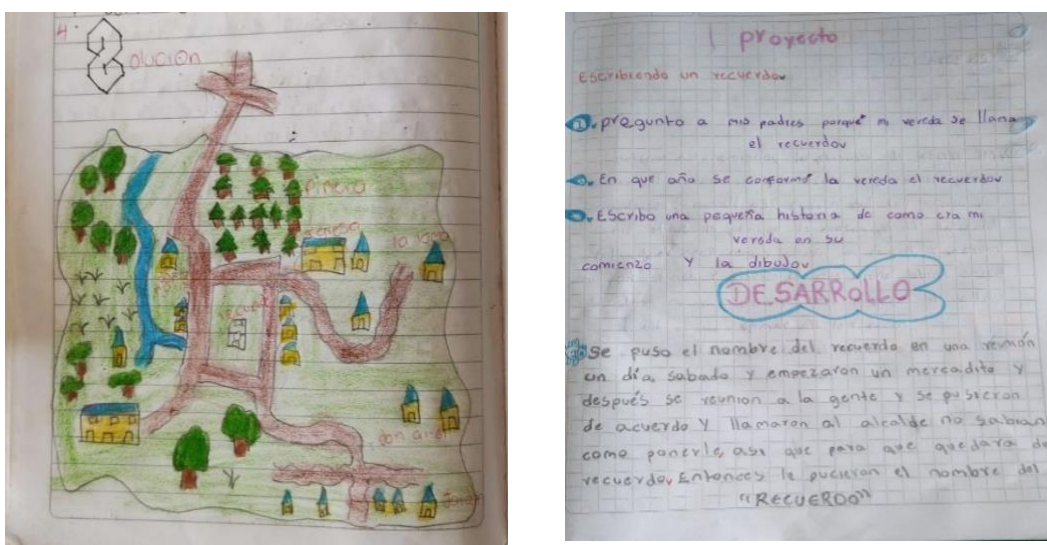 4.
Solución
pinera
la
don
1 proyecto
Escribiendo un recuerdo.
1. pregunto a mis padres porqué mi vereda se llama
el recuerdo.
2. En que año se conformó la vereda el recuerdo.
3. Escribo una pequeña historia de como era mi
vereda en su
comienzo y la dibujo.
DESARROLLO
Se puso el nombre del recuerdo en una reunión
un día sabado y empezaron un mercadito y
después se reunion a la gente y se pusieron
de acuerdo y llamaron al alcalde no sabian
como ponerle, asi que para que quedara de
recuerdo. Entonces le pucieron el nombre del
"RECUERDO"